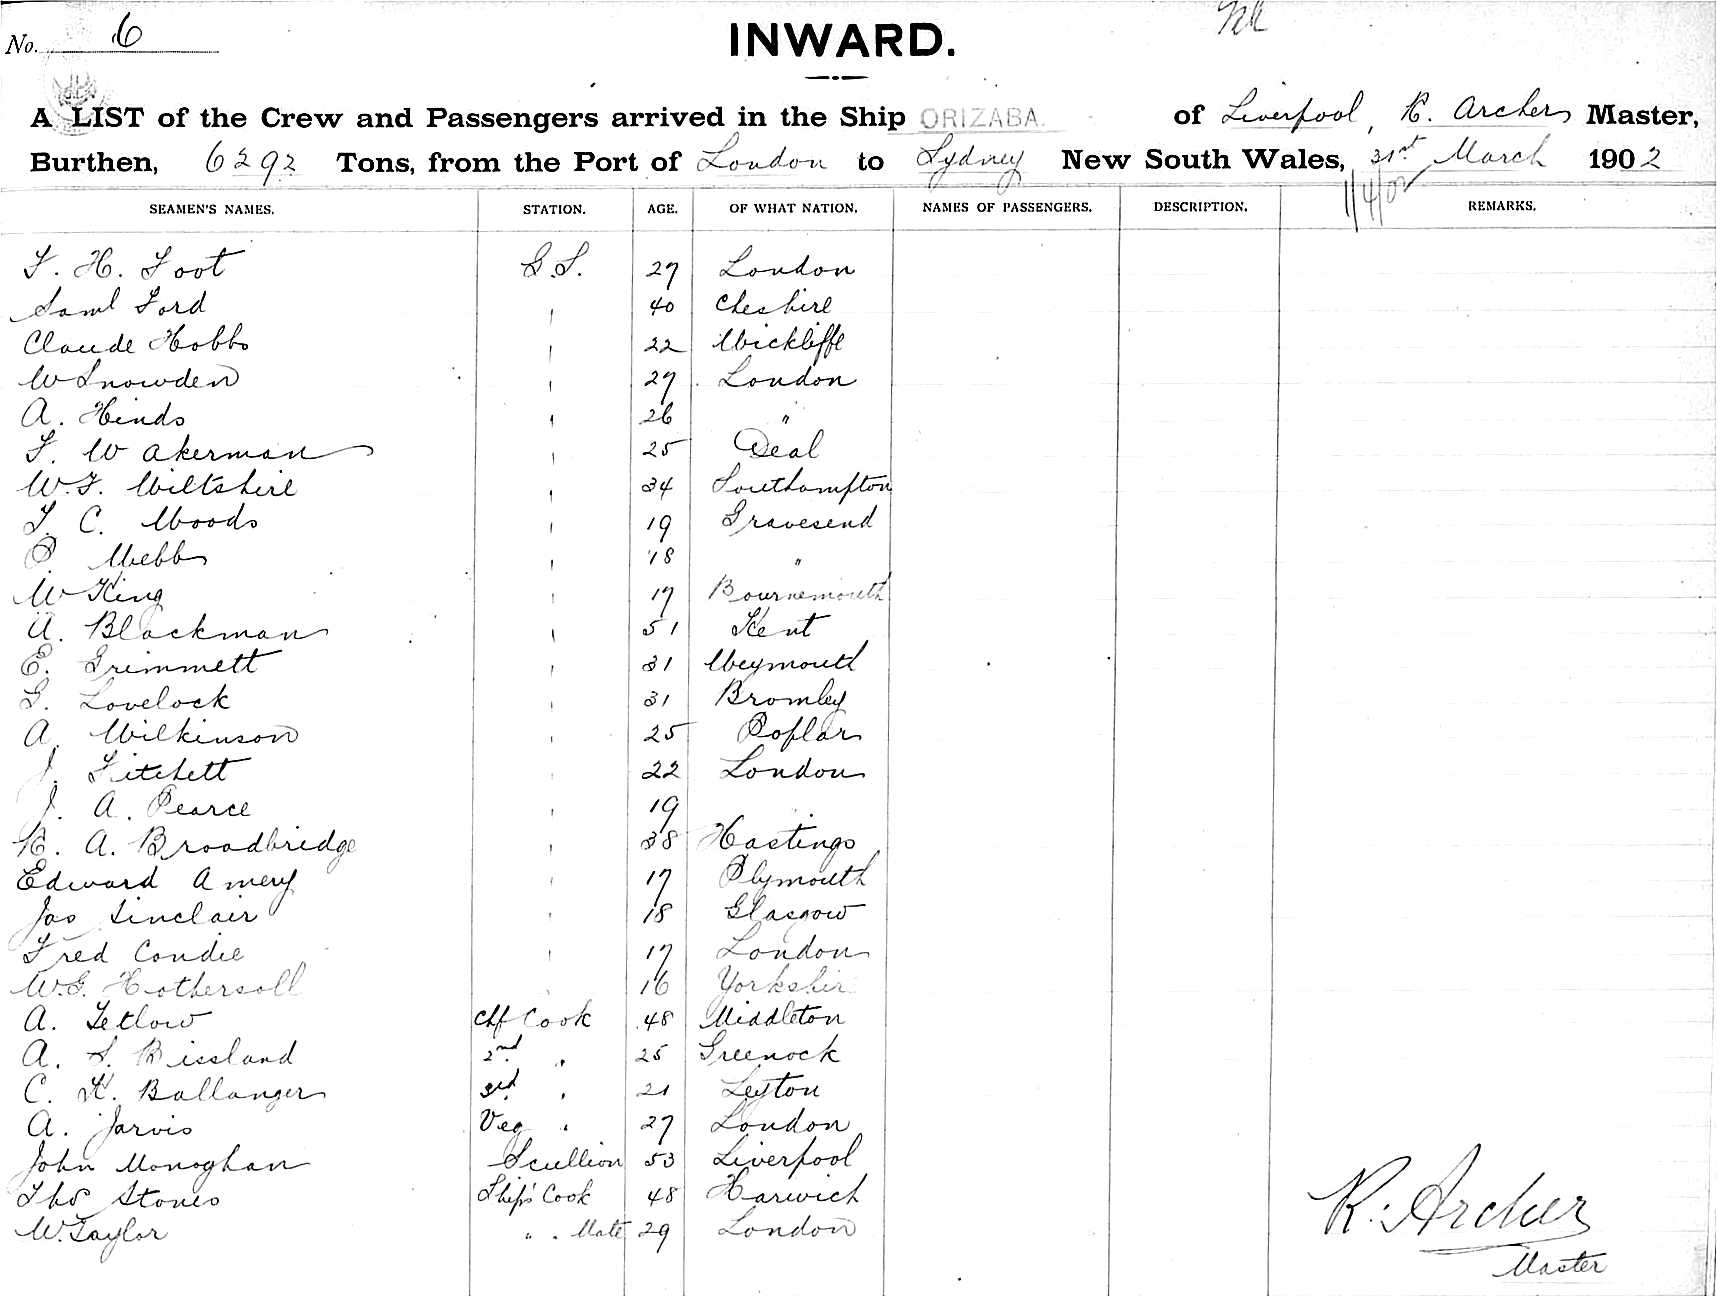 No. 6
INWARD.
A LIST of the Crew and Passengers arrived in the Ship ORIZABA. of Liverpool, R. Archer Master,
Burthen, 6292 Tons, from the Port of London to Sydney New South Wales, 31st March 1902
1/4/02
SEAMEN'S NAMES. STATION. AGE. OF WHAT NATION. NAMES OF PASSENGERS. DESCRIPTION. REMARKS.
F. H. Foot G.S. 27 London
Saml Ford " 40 Cheshire
Claude Hobbs " 22 Wickliffe
W Snowden " 27 London
A. Hinds " 26 "
F. W Akerman " 25 Deal
W. F. Wiltshire " 34 Southampton
F. C. Woods " 19 Gravesend
P Webb " 18 "
W King " 17 Bournemouth
A. Blackman " 51 Kent
E. Grimmett " 31 Weymouth
G. Lovelock " 31 Bromley
A Wilkinson " 25 Poplar
J. Fitchett " 22 London
J. A. Pearce " 19
R. A. Broadbridge " 38 Hastings
Edward Amery " 17 Plymouth
Jas Sinclair " 18 Glasgow
Fred Condie " 17 London
W.G. Hothersoll " 16 Yorkshire
A. Tetlow Chf Cook 48 Middleton
A. S. Bissland 2nd " 25 Greenock
C. K. Ballanger 3rd " 21 Leyton
A. Jarvis Veg " 27 London
John Monoghan Scullion 53 Liverpool
Thos Stones Ship's Cook 48 Harwich
W. Taylor " " Mate 29 London
R. Archer
Master